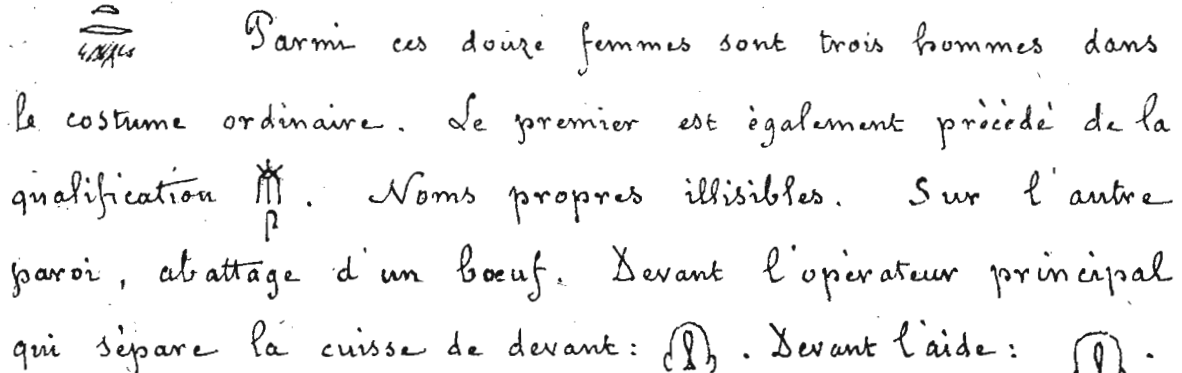 Parmi ces douze femmes sont trois hommes dans
le costume ordinaire. Le premier est également précédé de la
qualification . Noms propres illisibles. Sur l'autre
paroi, abattage d'un boeuf. Devant l'opérateur principal
qui sépare la cuisse de devant: . Devant l'aide: .